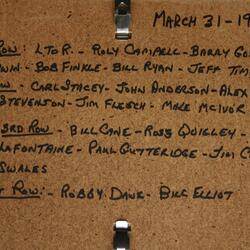 MARCH 31-19
ROW: L TO R. - ROLY CAMPBELL - BARRY GO
WIN - BOB FINKLE - BILL RYAN - JEFF TI
OW - CARL STACEY - JOHN ANDERSON - ALEX
STEVENSON - JIM FLESCH - MIKE MCIVOR
3RD ROW - BILL CANE - ROSS QUIGLEY -
LAFONTAINE - PAUL GUTTERIDGE - JIM C
SWALES
T ROW:- ROBBY DAWE - BILL ELLIOT